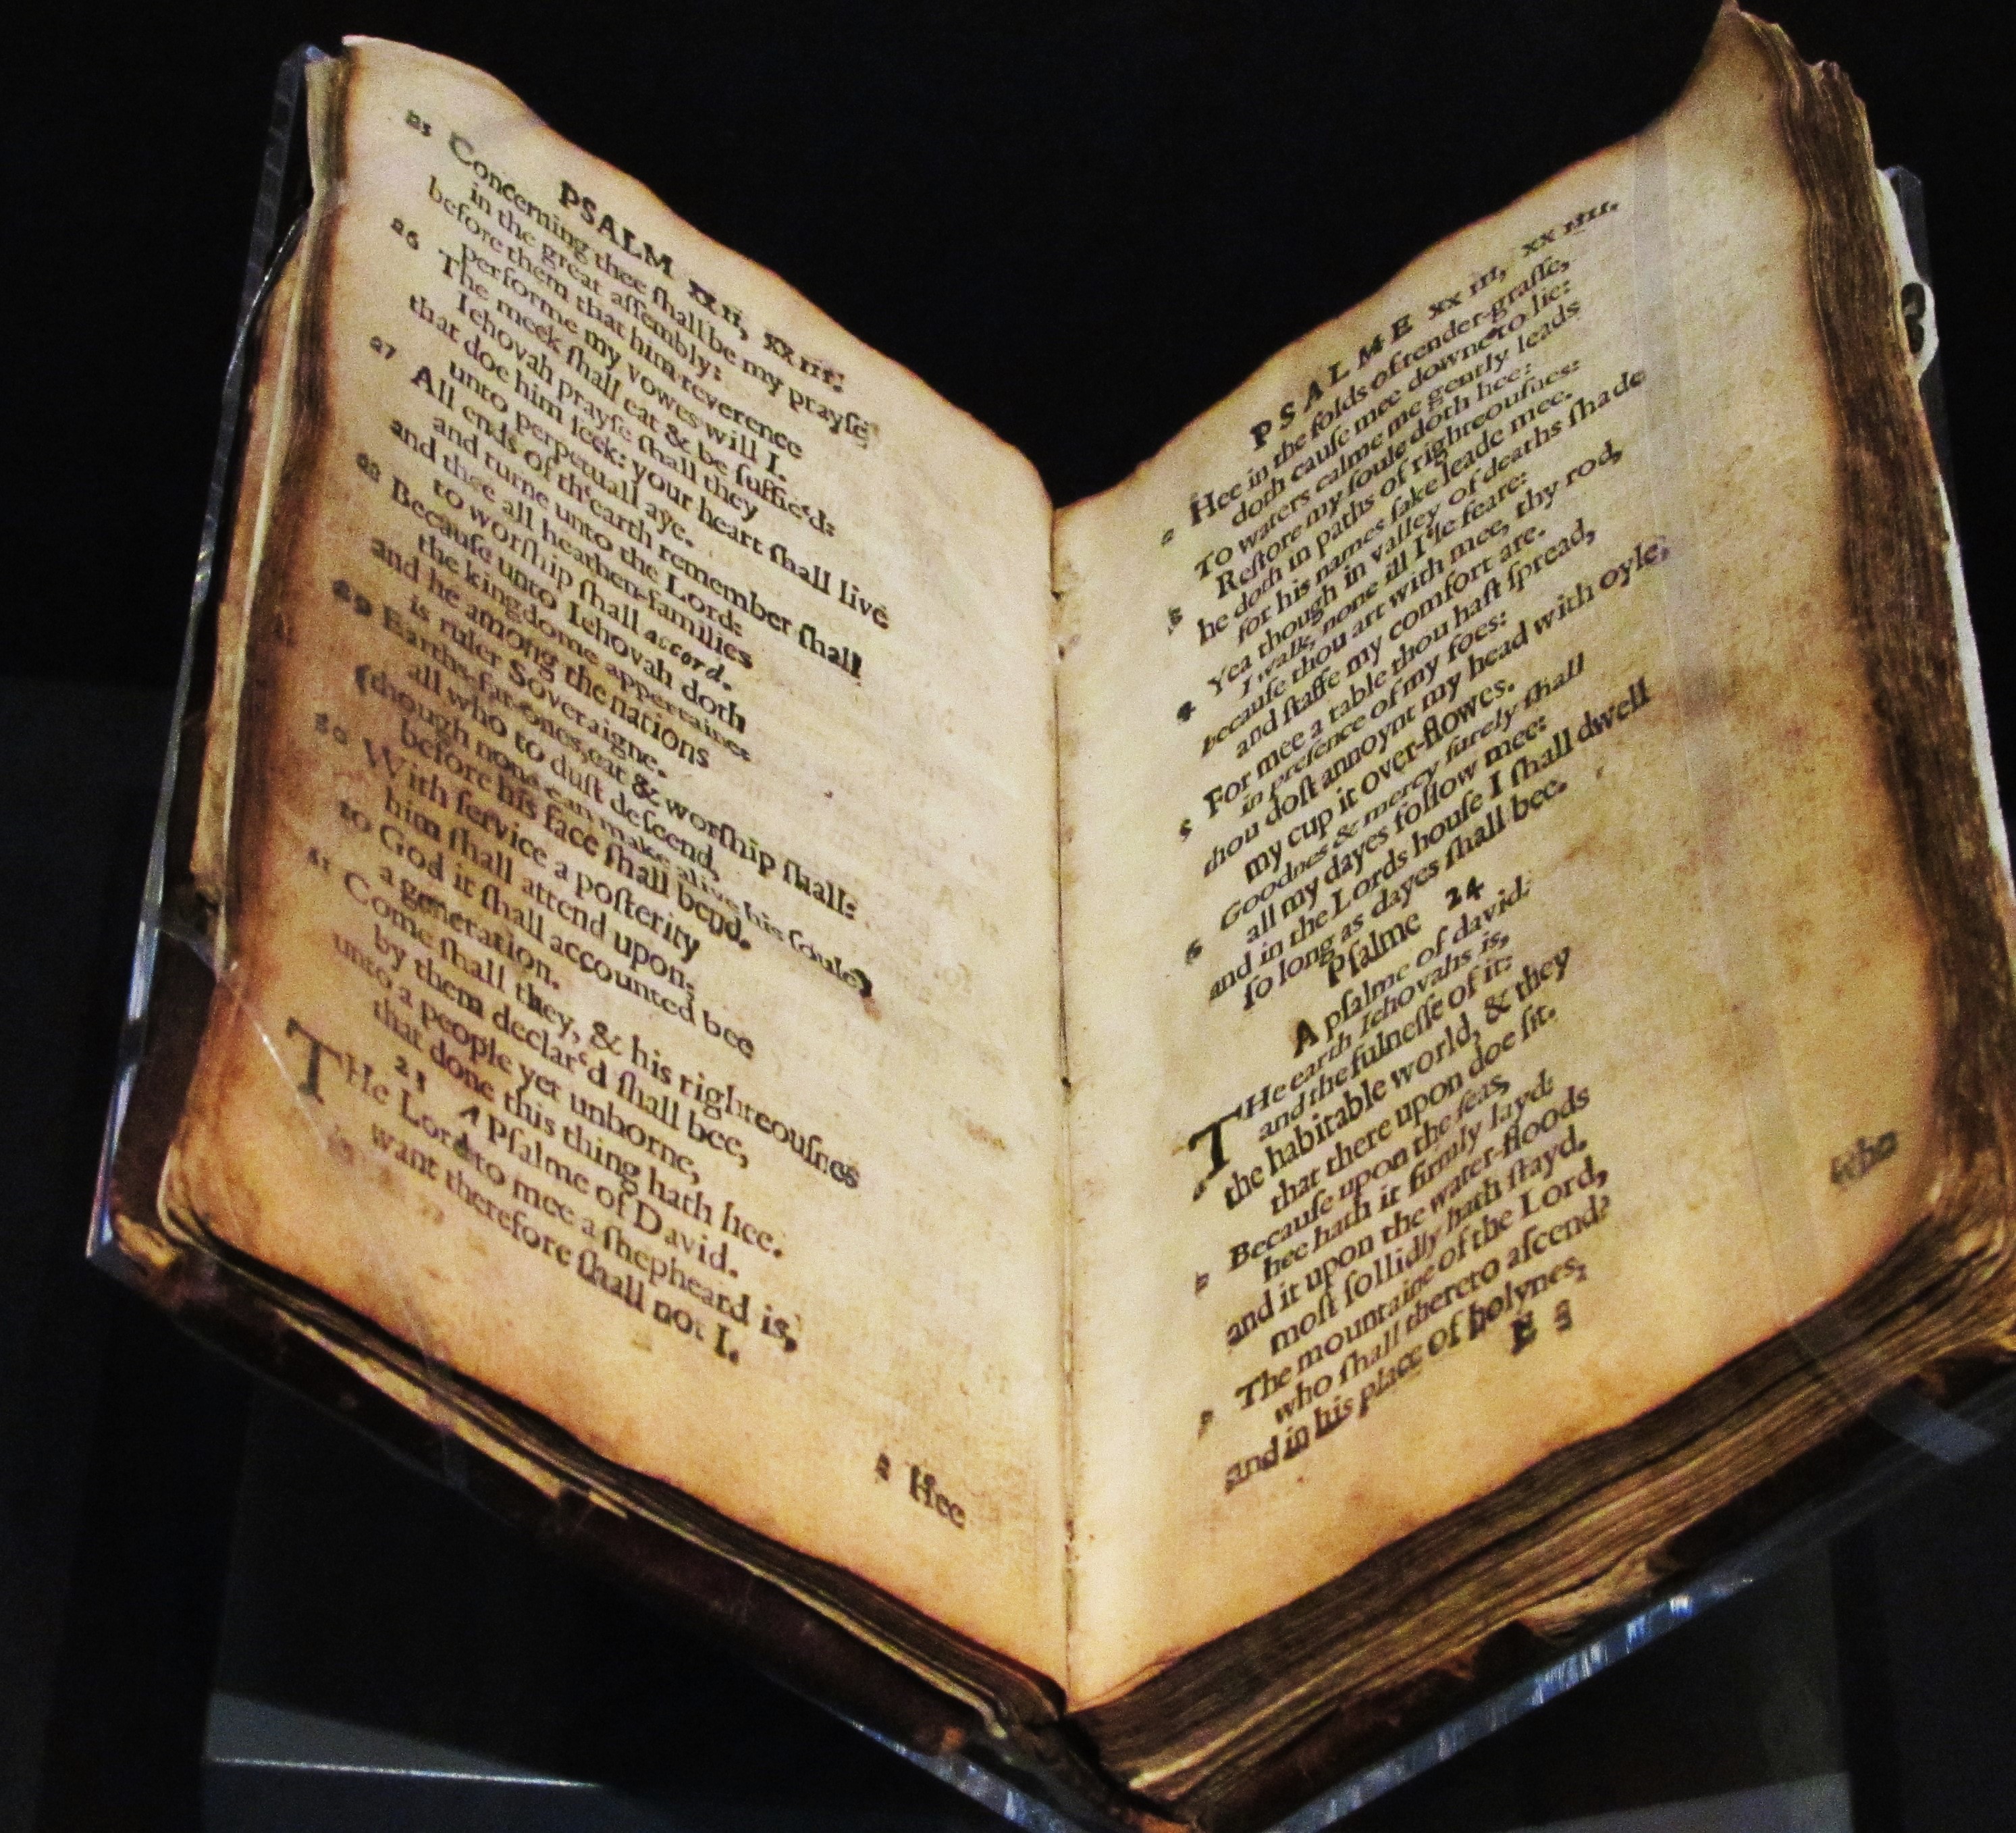 PSALM xxii, xxiii.
25 Concerning thee ſhall be my prayſe
in the great aſſembly:
before them that him reverence
performe my vowes will I.
26 The meek ſhall eat & be ſuffic'd:
Iehovah prayſe ſhall they
that doe him ſeek: your heart ſhall live
unto perpetuall aye.
27 All ends of th'earth remember ſhall
and turne unto the Lord:
and thee all heathen-families
to worſhip ſhall accord.
28 Becauſe unto Iehovah doth
the kingdome appertaine:
and he among the nations
is ruler Soveraigne.
29 Earths-fat-ones, eat & worſhip ſhall:
all who to duſt deſcend,
(though none can make alive his ſoule)
before his face ſhall bend.
30 With ſervice a poſterity
him ſhall attend upon;
to God it ſhall accounted bee
a generation.
31 Come ſhall they, & his righteouſnes
by them declar'd ſhall bee,
unto a people yet unborne,
that done this thing hath hee.
23 A Pſalme of David.
THe Lord to mee a ſhepheard is,
want therefore ſhall not I.
2 Hee
PSALME xxiii, xxiiii.
2 Hee in the folds of tender-graſſe,
doth cauſe mee downe to lie:
To waters calme me gently leads
3 Reſtore my ſoule doth hee:
he doth in paths of righteouſnes:
for his names ſake leade mee.
4 Yea though in valley of deaths ſhade
I walk, none ill I'le feare:
becauſe thou art with mee, thy rod,
and ſtaffe my comfort are.
5 For mee a table thou haſt ſpread,
in preſence of my foes:
thou doſt annoynt my head with oyle,
my cup it over-flowes.
6 Goodnes & mercy ſurely ſhall
all my dayes follow mee:
and in the Lords houſe I ſhall dwell
ſo long as dayes ſhall bee.
Pſalme 24
A pſalme of david.
THe earth Iehovahs is,
and the fulneſſe of it:
the habitable world, & they
that there upon doe ſit.
2 Becauſe upon the ſeas,
hee hath it firmly layd:
and it upon the water-floods
moſt ſollidly hath ſtayd.
3 The mountaine of the Lord,
who ſhall thereto aſcend?
and in his place of holynes,
E 3
who